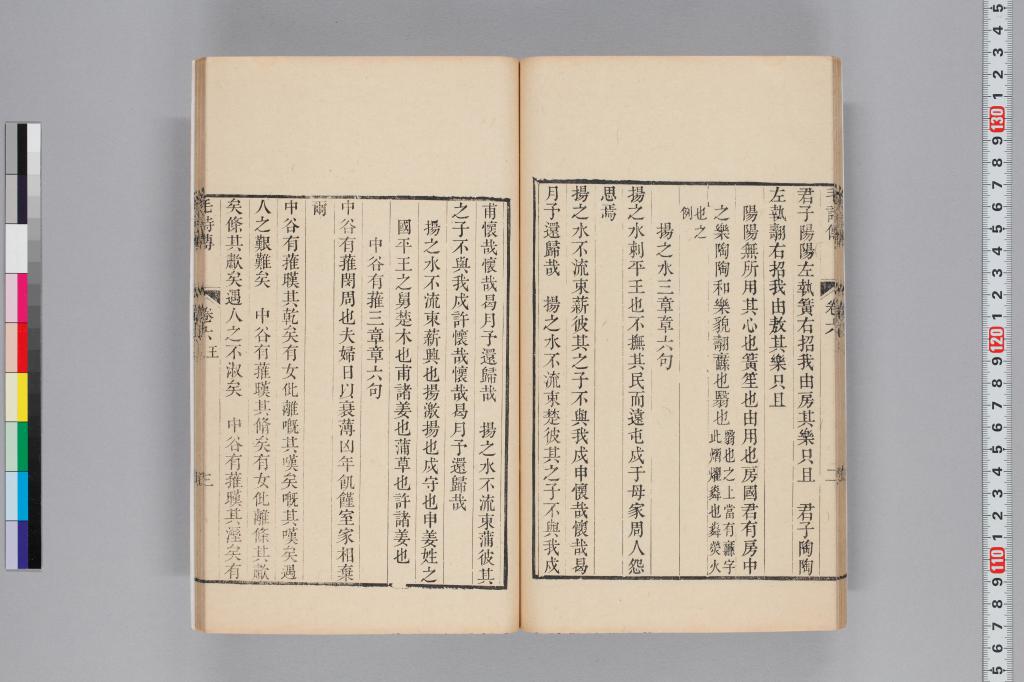 君子陽陽左執簧右招我由房其樂只且　君子陶陶
左執翿右招我由敖其樂只且
陽陽無所用其心也簧笙也由用也房國君有房中
之樂陶陶和樂貌翿纛也翳也
翳也之上當有纛字
此熠燿粦也粦熒火
也之
例
揚之水三章章六句
揚之水刺平王也不撫其民而遠屯戍于母家周人怨
思焉
揚之水不流束薪彼其之子不與我戍申懷哉懷哉曷
月予還歸哉　揚之水不流束楚彼其之子不與我戍
甫懷哉懷哉曷月予還歸哉　揚之水不流束蒲彼其
之子不與我戍許懷哉懷哉曷月予還歸哉
揚之水不流束薪興也揚激揚也戍守也申姜姓之
國平王之舅楚木也甫諸姜也蒲草也許諸姜也
中谷有蓷三章章六句
中谷有蓷閔周也夫婦日以衰薄凶年飢饉室家相棄
爾
中谷有蓷暵其乾矣有女仳離嘅其嘆矣嘅其嘆矣遇
人之艱難矣　中谷有蓷暵其脩矣有女仳離條其歗
矣條其歗矣遇人之不淑矣　中谷有蓷暵其溼矣有
毛詩傳　卷六　王　三